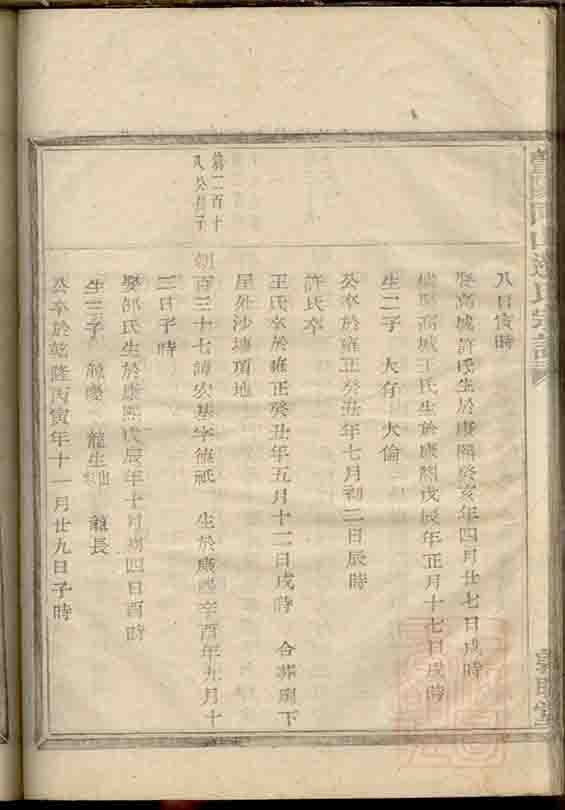 八日寅時
娶高城許氏生於康熙癸亥年四月廿七日戌時
高城王氏生於康熙戊辰年正月十七日戌時
生二子 大存 大倫
公卒於雍正癸丑年七月初二日辰時
許氏卒
王氏卒於雍正癸丑年五月十二日戌時 合葬
屋外沙塘項地
第二百十
八公長子
朝百三十七諱宏基字 生於康熙辛酉年九月十
二日子時
娶邰氏生於康熙戊辰年十月初四日酉時
生三子 龍慶 龍生 龍長
公卒於乾隆丙寅年十一月廿九日子時